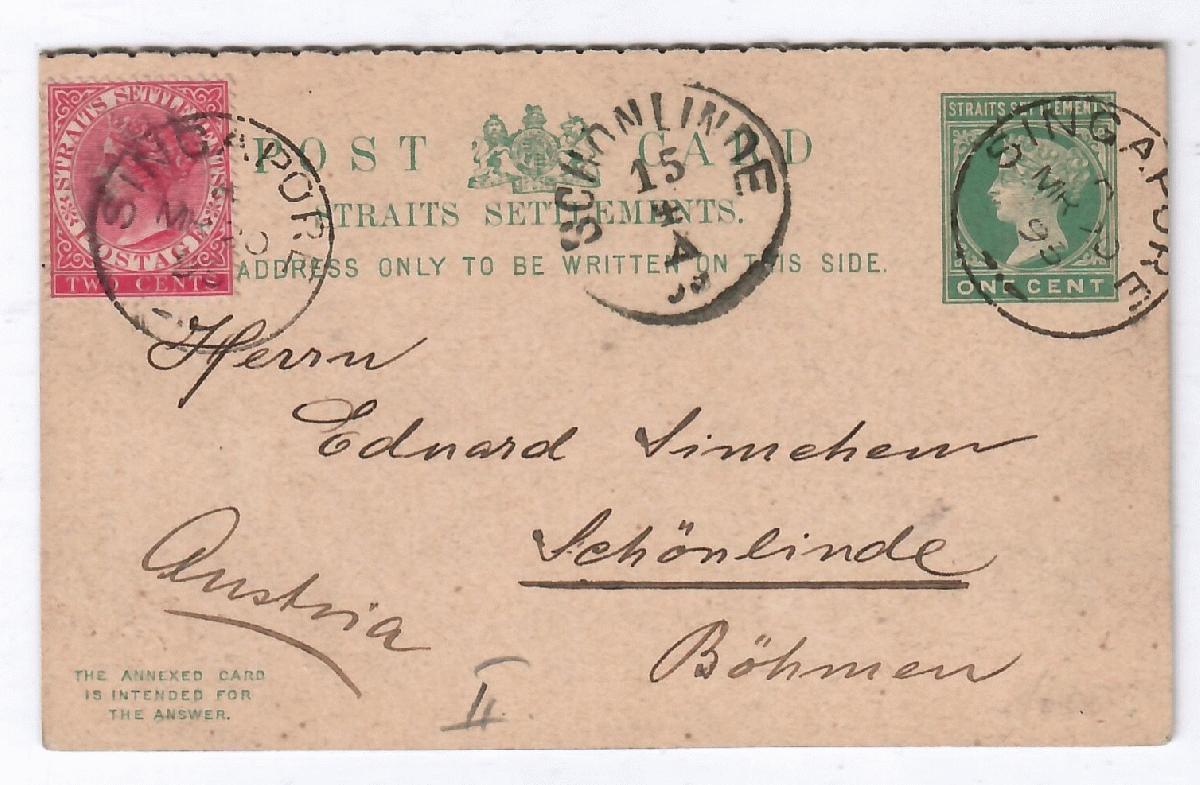 STRAITS SETTLEMENTS
POSTAGE
TWO CENTS
SINGAPORE
MR 20
POST CARD
STRAITS SETTLEMENTS.
THE ADDRESS ONLY TO BE WRITTEN ON THIS SIDE.
SCHÖNLINDE
15
4
STRAITS SETTLEMENTS
ONE CENT
SINGAPORE
MR 20
93
Herrn
Eduard
Schönlinde
Böhmen
Austria
THE ANNEXED CARD
IS INTENDED FOR
THE ANSWER.
II